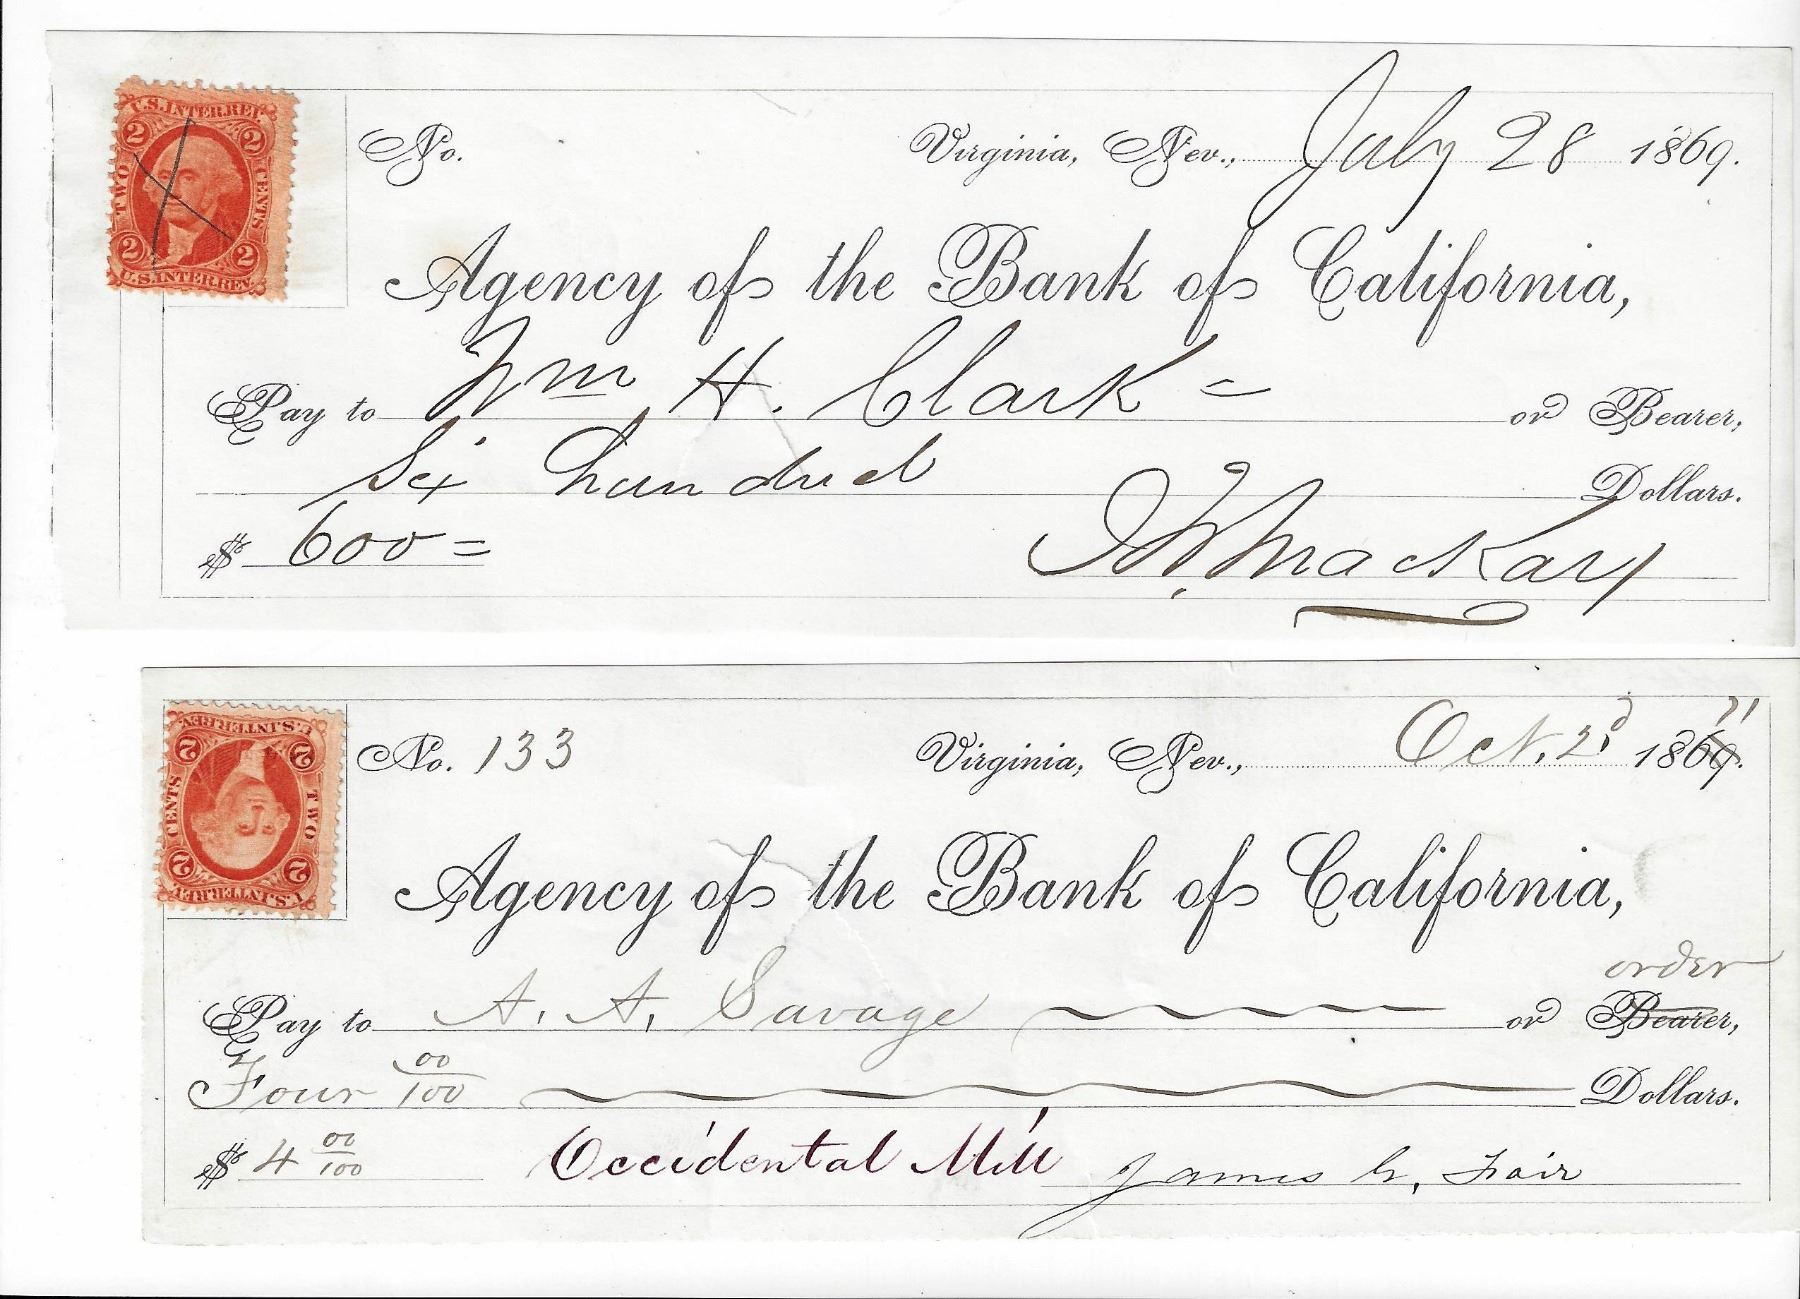 U.S. INTER. REV.
2 2
TWO CENTS
2 2
U.S. INTER. REV.
No. Virginia, Nev., July 28 1869.
Agency of the Bank of California,
Pay to Wm H. Clark = or Bearer,
Six hundred Dollars.
$ 600 = J W Mackay
U.S. INTER. REV.
2 2
TWO CENTS
2 2
U.S. INTER. REV.
No. 133 Virginia, Nev., Oct. 2d 1869. 71
Agency of the Bank of California,
order
Pay to A. A. Savage or Bearer,
Four 00/100 Dollars.
$ 4 00/100 Occidental Mill James G. Fair